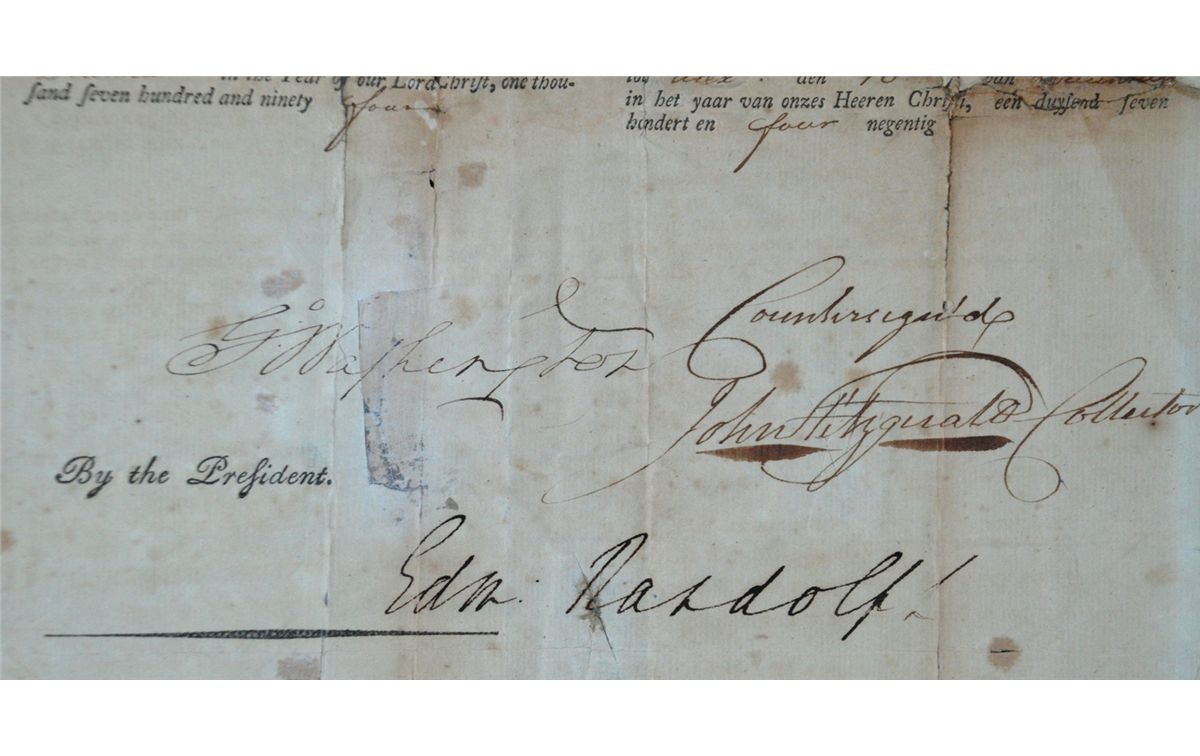 in the Year of our Lord Chriſt, one thou-
ſand ſeven hundred and ninety four
den van
in het yaar van onzes Heeren Chriſti, een duyſend ſeven
hondert en four negentig
Go Washington
Countersign'd
John Fitzgerald Collector
By the Preſident.
Edm: Randolph